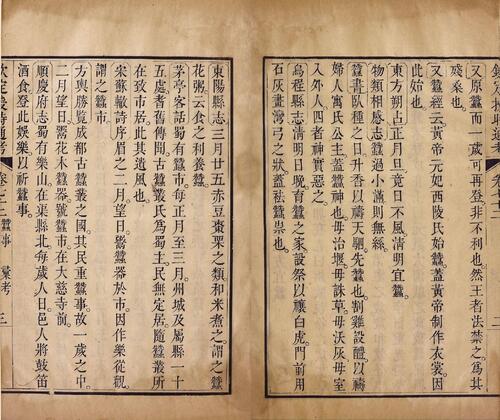 又原蠶而一歲可再登非不利也。然王者法禁之。爲其
殘桑也。
又蠶經云。黃帝元妃西陵氏始蠶。蓋黃帝制作衣裳。因
此始也。
東方朔占正月旦竟日不風清明宜蠶。
物類相感志蠶過小滿則無絲。
蠶書臥種之日升香以禱天駟先蠶也。割雞設醴。以禱
婦人寓氏公主蓋蠶神也。毋治堰毋誅草。毋沃灰毋室
入外人四者神實惡之。
烏程縣志清明日晚育蠶之家設祭以禳白虎門前用
石灰畫灣弓之狀。蓋祛蠶祟也。
東陽縣志三月廿五赤豆棗栗之類和米煮之謂之蠶
花粥。云食之利養蠶。
茅亭客話蜀有蠶市。每正月至三月州城及屬縣一十
五處耆舊傳聞古蠶叢氏爲蜀主民無定居。隨蠶叢所
在致市居。此其遺風也。
宋蘇轍詩序眉之二月望日。鬻蠶器於市。因作樂從觀。
謂之蠶市。
方輿勝覽成都古蠶叢之國。其民重蠶事。故一歲之中。
二月望日。鬻花木蠶器號蠶市在大慈寺前。
順慶府志蜀有樂山。在渠縣北。每歲人日。邑人將鼓笛
酒食。登此娛樂。以祈蠶事。
欽定授時通考 蠶事 彙考 三